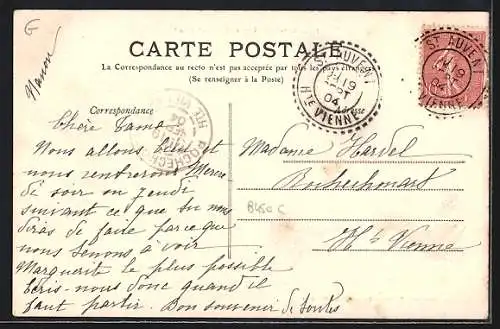 G
Manon
CARTE POSTALE
La Correspondance au recto n'est pas acceptée par tous les pays étrangers
(Se renseigner à la Poste)
Correspondance
Adresse
ST AUVENT
19
04
HTE VIENNE
ST AUVENT
19
04
VIENNE
ROCHECH
HTE VIE
04
Chère
Nous allons bien et
nous rentrerons Mercre
di soir ou jeudi
suivant ce que tu nous
diras de faite parce que
nous tenons à voir
Marguerite le plus possible
Écris-nous donc quand il
faut partir. Bon souvenir de toutes
Madame Hardel
Rochechouart
Hte Vienne